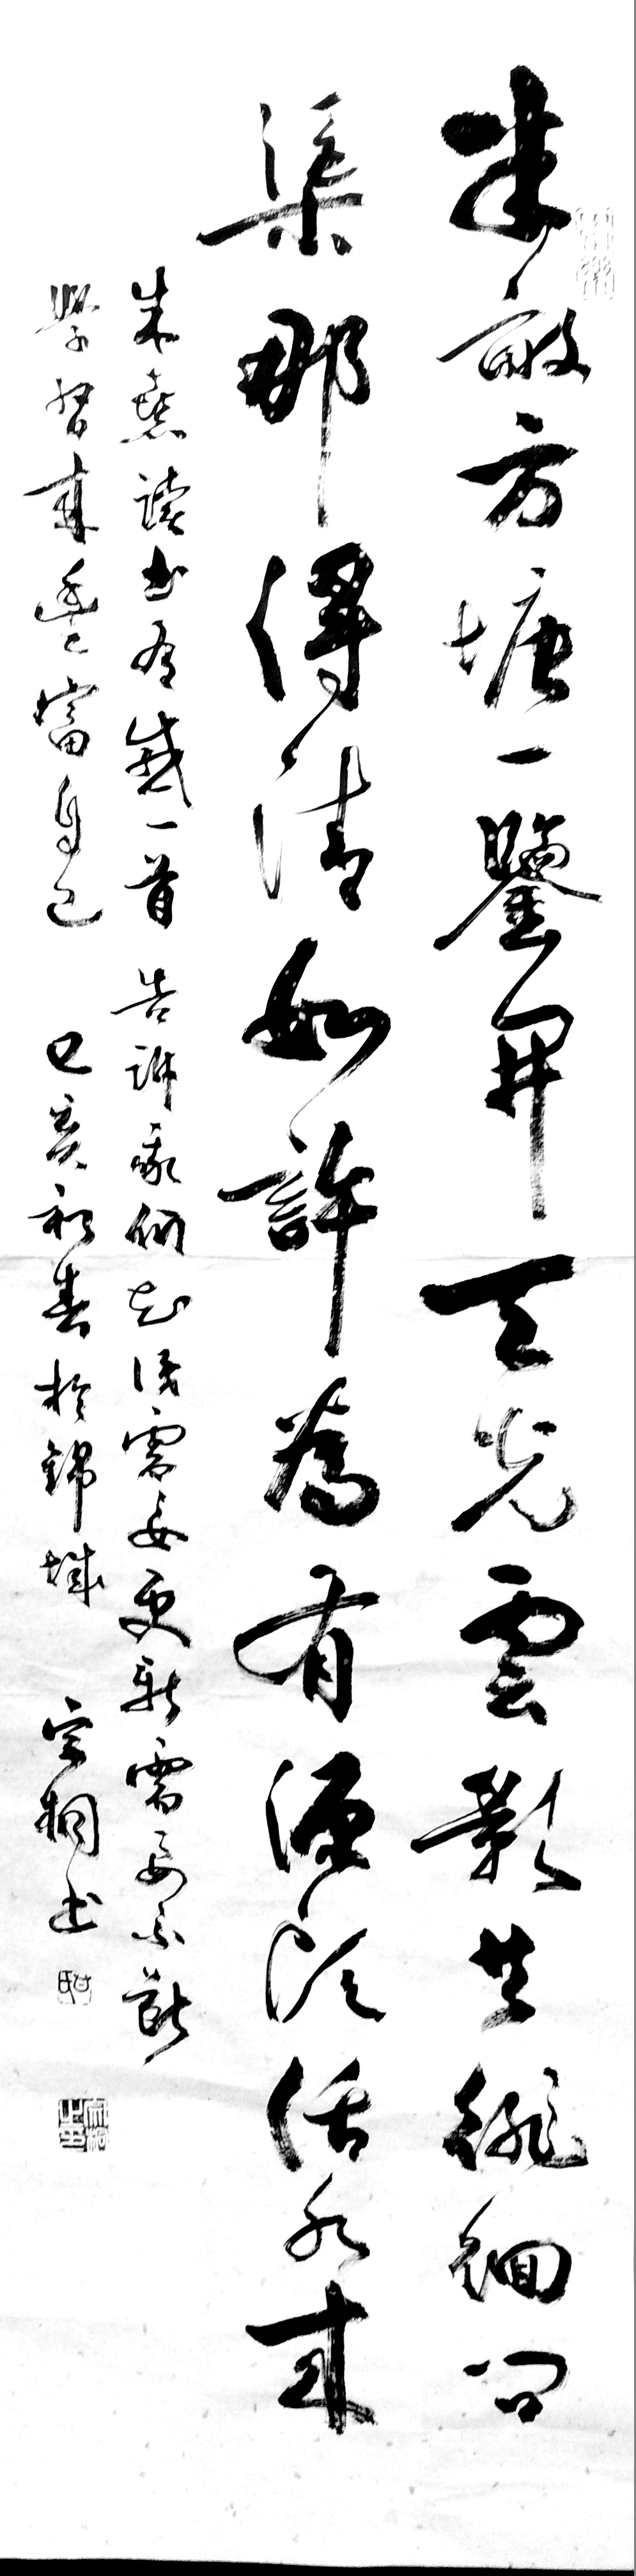 半畝方塘一鑒開天光雲影共徘徊問
渠那得清如許為有源頭活水來
朱熹讀書有感一首 告訴我們知識需要更新需要不斷
學習來豐富自己 己亥初春於錦城 宗桐書